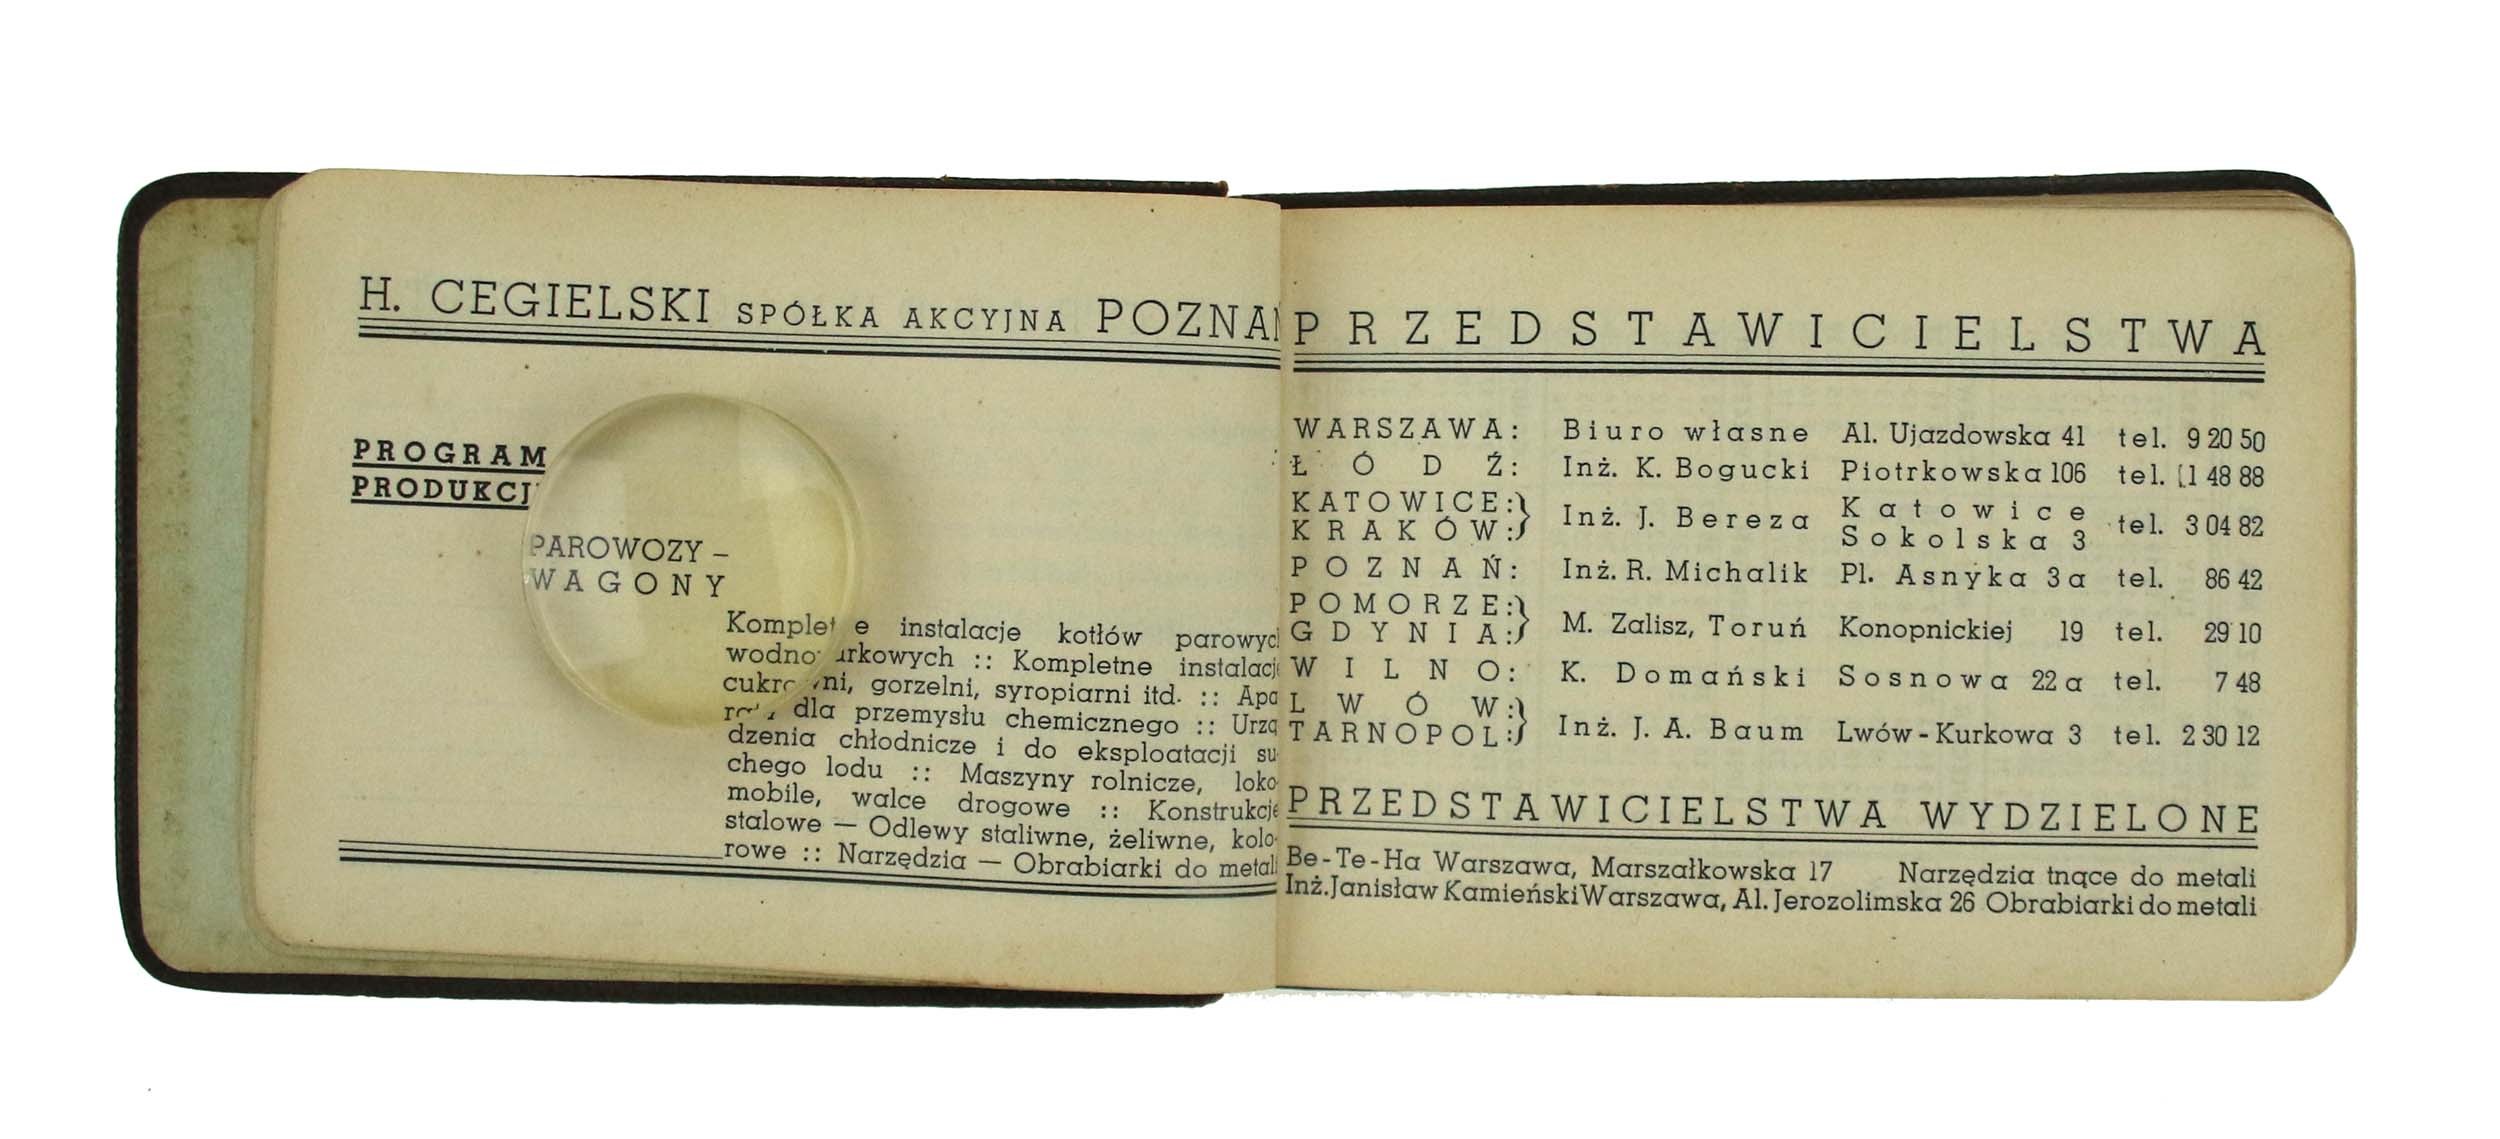 H. CEGIELSKI SPÓŁKA AKCYJNA POZNAŃ
PROGRAM
PRODUKCJI
PAROWOZY –
WAGONY
Kompletne instalacje kotłów parowych
wodnorurkowych :: Kompletne instalacje
cukrowni, gorzelni, syropiarni itd. :: Apa
raty dla przemysłu chemicznego :: Urzą
dzenia chłodnicze i do eksploatacji su-
chego lodu :: Maszyny rolnicze, loko-
mobile, walce drogowe :: Konstrukcje
stalowe — Odlewy staliwne, żeliwne, kolo-
rowe :: Narzędzia — Obrabiarki do metali
PRZEDSTAWICIELSTWA
WARSZAWA: Biuro własne Al. Ujazdowska 41 tel. 9 20 50
ŁÓDŹ: Inż. K. Bogucki Piotrkowska 106 tel. 1 48 88
KATOWICE:} Inż. J. Bereza Katowice tel. 3 04 82
KRAKÓW:} Sokolska 3
POZNAŃ: Inż. R. Michalik Pl. Asnyka 3a tel. 86 42
POMORZE:} M. Zalisz, Toruń Konopnickiej 19 tel. 29 10
GDYNIA:}
WILNO: K. Domański Sosnowa 22a tel. 7 48
LWÓW:} Inż. J. A. Baum Lwów-Kurkowa 3 tel. 2 30 12
TARNOPOL:}
PRZEDSTAWICIELSTWA WYDZIELONE
Be-Te-Ha Warszawa, Marszałkowska 17 Narzędzia tnące do metali
Inż. Janisław Kamieński Warszawa, Al. Jerozolimska 26 Obrabiarki do metali